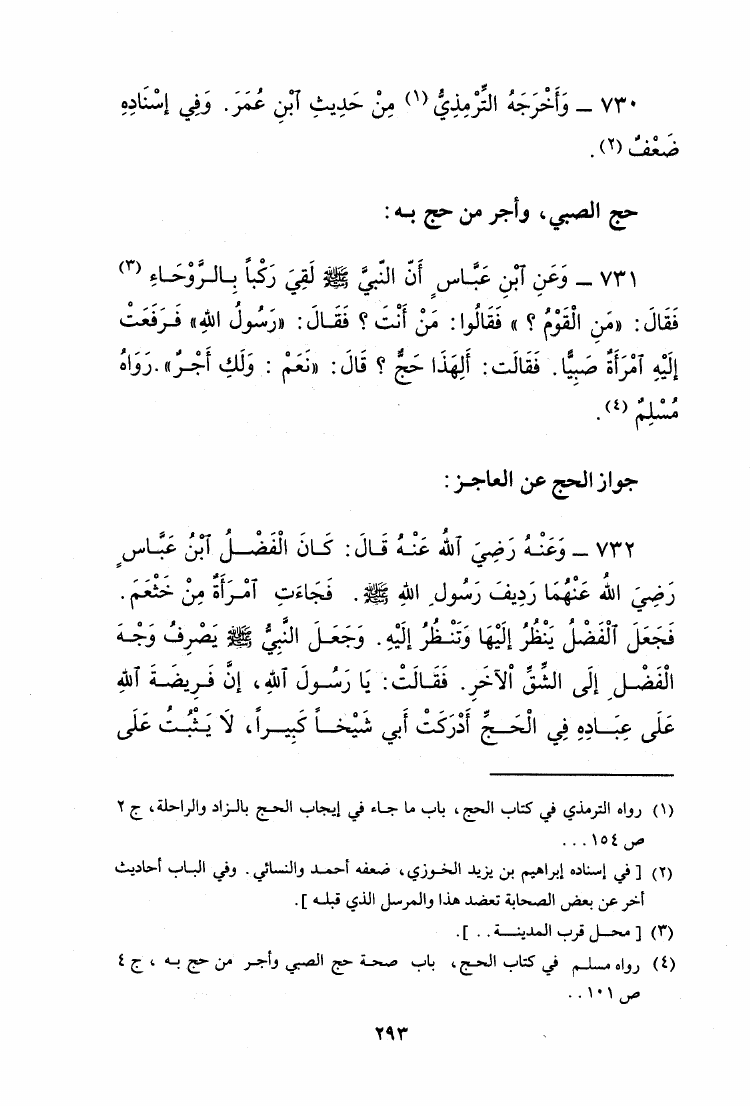 ٧٣٠ ـ وَأَخْرَجَهُ التِّرْمِذِيُّ (١) مِنْ حَدِيثِ ٱبْنِ عُمَرَ. وَفِي إِسْنَادِهِ
ضَعْفٌ (٢).
حج الصبي، وأجر من حج به:
٧٣١ ـ وَعَنِ ٱبْنِ عَبَّاسٍ أَنَّ النَّبِيَّ ﷺ لَقِيَ رَكْباً بِالرَّوْحَاءِ (٣)
فَقَالَ: «مَنِ الْقَوْمُ ؟ » فَقَالُوا: مَنْ أَنْتَ ؟ فَقَالَ: «رَسُولُ اللهِ» فَرَفَعَتْ
إِلَيْهِ ٱمْرَأَةٌ صَبِيًّا. فَقَالَت: أَلِهَذَا حَجٌّ ؟ قَالَ: «نَعَمْ : وَلَكِ أَجْرٌ». رَوَاهُ
مُسْلِمٌ (٤).
جواز الحج عن العاجز:
٧٣٢ ـ وَعَنْهُ رَضِيَ ٱللهُ عَنْهُ قَالَ: كَانَ الْفَضْلُ ٱبْنُ عَبَّاسٍ
رَضِيَ اللهُ عَنْهُمَا رَدِيفَ رَسُولِ اللهِ ﷺ. فَجَاءَتِ ٱمْرَأَةٌ مِنْ خَثْعَمَ.
فَجَعَلَ ٱلْفَضْلُ يَنْظُرُ إِلَيْهَا وَتَنْظُرُ إِلَيْهِ. وَجَعَلَ النَّبِيُّ ﷺ يَصْرِفُ وَجْهَ
الْفَضْلِ إِلَى الشِّقِّ ٱلْآخَرِ. فَقَالَتْ: يَا رَسُولَ ٱللهِ، إِنَّ فَرِيضَةَ ٱللهِ
عَلَى عِبَادِهِ فِي الْحَجِّ أَدْرَكَتْ أَبِي شَيْخاً كَبِيراً، لَا يَثْبُتُ عَلَى
(١) رواه الترمذي في كتاب الحج، باب ما جاء في إيجاب الحج بالزاد والراحلة، ج ٢
ص ١٥٤...
(٢) [ في إسناده إبراهيم بن يزيد الخوزي، ضعفه أحمد والنسائي. وفي الباب أحاديث
أخر عن بعض الصحابة تعضد هذا والمرسل الذي قبله ].
(٣) [ محل قرب المدينة.. ].
(٤) رواه مسلم في كتاب الحج، باب صحة حج الصبي وأجر من حج به ، ج ٤
ص ١٠١..
٢٩٣